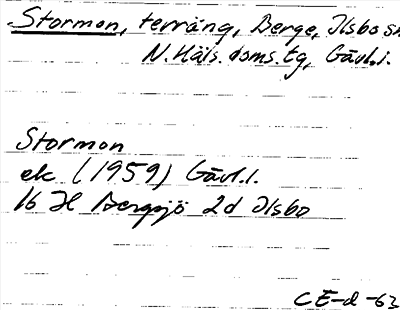 Stormon, terräng, Berge, Ilsbo sn
N. Häls. doms. tg, Gävl.l.
Stormon
ek (1959) Gävl.l.
16 H Bergsjö 2d Ilsbo
CE-d -63